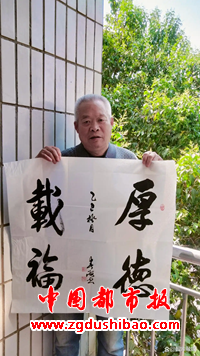 厚德
載福
中国都市报
www.zgdushibao.com